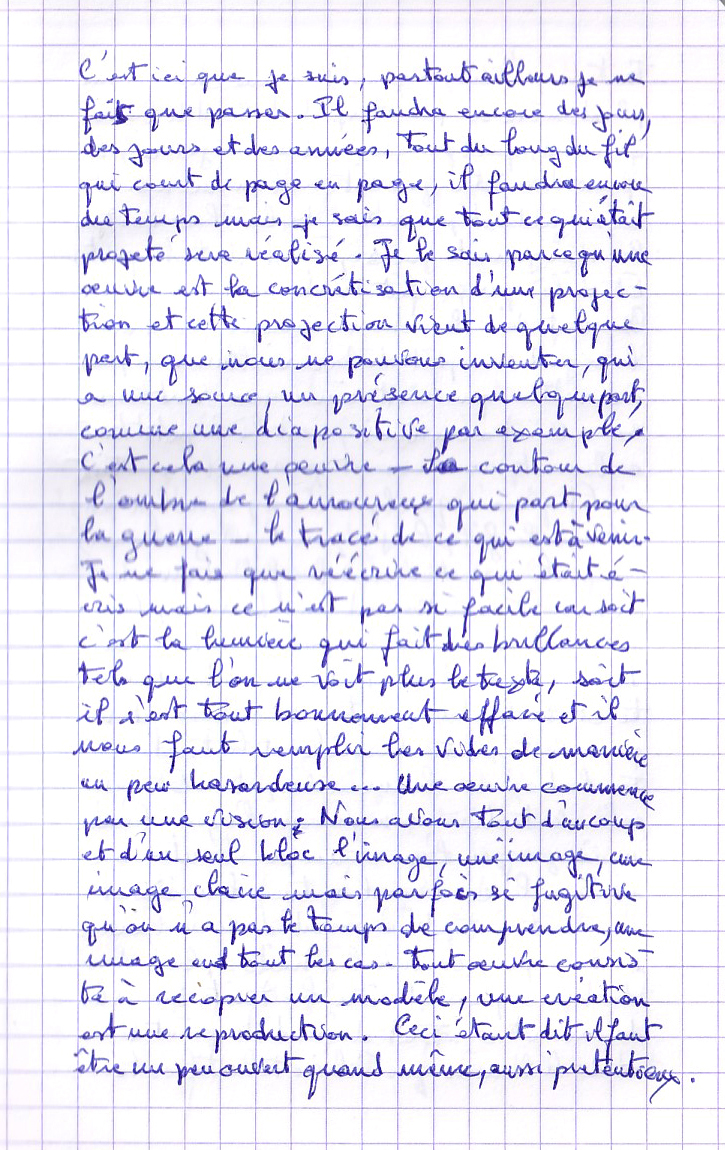 C'est ici que je suis, partout ailleurs je ne
fais que passer. Il faudra encore des jours,
des jours et des années, tout du long du fil
qui court de page en page, il faudra encore
du temps mais je sais que tout ce qui était
projeté sera réalisé. Je le sais parce qu'une
œuvre est la concrétisation d'une projec-
tion et cette projection vient de quelque
part, que nous ne pouvons inventer, qui
a une source, un présence quelque part,
comme une diapositive par exemple,
C'est cela une œuvre - Le contour de
l'ombre de l'amoureux qui part pour
la guerre - le tracé de ce qui est à venir.
Je ne fais que réécrire ce qui était é-
cris mais ce n'est pas si facile car soit
c'est la lumière qui fait des brillances
tels que l'on ne voit plus le texte, soit
il s'est tout bonnement effacé et il
nous faut remplir les vides de manière
un peu hasardeuse... Une œuvre commence
par une vision: Nous avons tout d'àucoup
et d'un seul bloc l'image, une image, une
image claire mais parfois si fugitive
qu'on n'a pas le temps de comprendre, une
image en tout les cas. Tout œuvre consis-
te à recopier un modèle, une création
est une reproduction. Ceci étant dit il faut
être un peu ouvert quand même, aussi prétentieux.